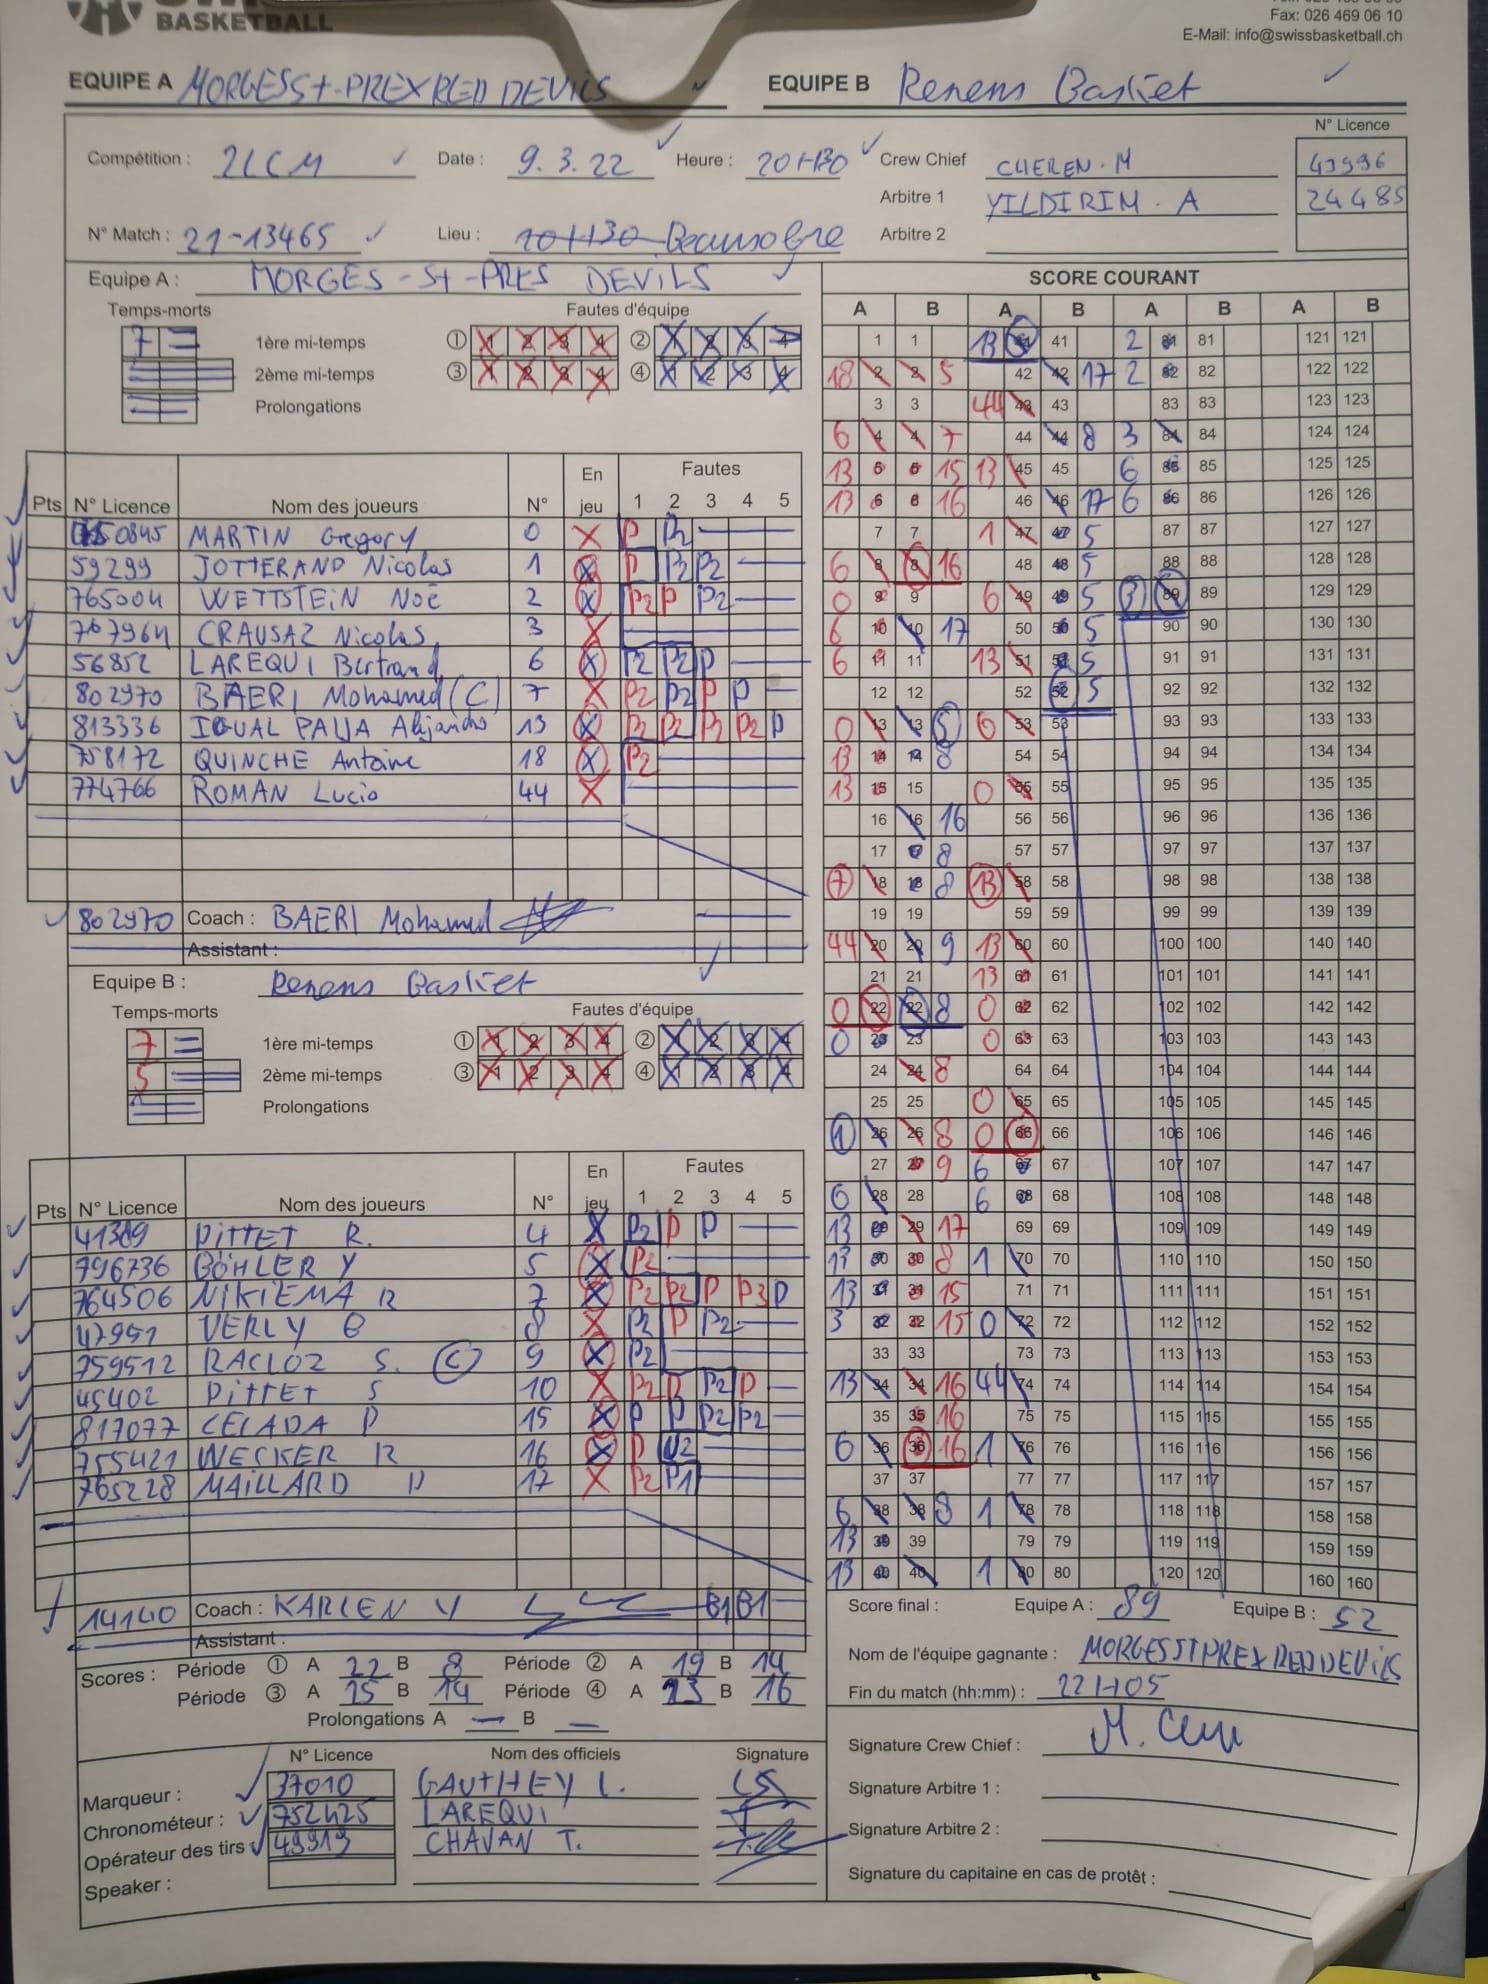 BASKETBALL
Fax: 026 469 06 10
E-Mail: info@swissbasketball.ch
EQUIPE A MORGES St-PREX RED DEVILS
EQUIPE B Renens Basket
N° Licence
Compétition : 2LCM Date : 9.3.22 Heure : 20H30 Crew Chief CHEREN. M 43996
Arbitre 1 YILDIRIM. A 24485
N° Match : 21-13465 Lieu : 20H30 Beausobre Arbitre 2
Equipe A : MORGES-St-PRES DEVILS
Temps-morts Fautes d'équipe
7 1ère mi-temps ① 1 2 3 4 ② 1 2 3 4
2ème mi-temps ③ 1 2 3 4 ④ 1 2 3 4
Prolongations
Pts N° Licence Nom des joueurs N° En jeu Fautes 1 2 3 4 5
MARTIN Gregory 0 X P P2
59299 JOTTERAND Nicolas 1 X P P2 P2
765004 WETTSTEIN Noé 2 X P2 P P2
767964 CRAUSAZ Nicolas 3 X
56852 LAREQUI Bertrand 6 X P2 P2 P
802970 BAERI Mohamed (C) 7 X P2 P2 P P
813336 IGUAL PAYA Alejandro 13 X P2 P2 P2 P2 P
758172 QUINCHE Antoine 18 X P2
774766 ROMAN Lucio 44 X
802970 Coach : BAERI Mohamed
Assistant :
Equipe B : Renens Basket
Temps-morts Fautes d'équipe
7 1ère mi-temps ① 1 2 3 4 ② 1 2 3 4
5 2ème mi-temps ③ 1 2 3 4 ④ 1 2 3 4
Prolongations
Pts N° Licence Nom des joueurs N° En jeu Fautes 1 2 3 4 5
PITTET R. 4 X P2 P P
796736 BÖHLER Y 5 X P2
764506 NIKIEMA R 7 X P2 P2 P P3 P
47991 VERLY B 8 X P2 P P2
759512 RACLOZ S. (C) 9 X P2
45402 PITTET S 10 X P2 P P2 P
817077 CELADA D 15 X P P P2 P2
755421 WECKER R 16 X P U2
765228 MAILLARD D 17 X P2 P1
14140 Coach : KARLEN Y B1 B1
Assistant :
Scores : Période ① A 22 B 8 Période ② A 19 B 14
Période ③ A 25 B 14 Période ④ A 23 B 16
Prolongations A — B —
N° Licence Nom des officiels Signature
Marqueur : 37010 GAUTHEY L.
Chronométeur : 752425 LAREQUI
Opérateur des tirs : 49919 CHAVAN T.
Speaker :
SCORE COURANT
A B A B A B A B
1 1 13 41 41 2 81 81 121 121
18 2 2 5 42 42 17 2 82 82 122 122
3 3 44 43 43 83 83 123 123
6 4 4 7 44 44 8 3 84 84 124 124
13 5 5 15 13 45 45 6 85 85 125 125
13 6 6 16 46 46 17 6 86 86 126 126
7 7 1 47 47 5 87 87 127 127
6 8 8 16 48 48 5 88 88 128 128
0 9 9 6 49 49 5 3 89 89 129 129
6 10 10 17 50 50 5 90 90 130 130
6 11 11 13 51 51 5 91 91 131 131
12 12 52 52 5 92 92 132 132
0 13 13 5 6 53 53 93 93 133 133
13 14 14 8 54 54 94 94 134 134
13 15 15 0 55 55 95 95 135 135
16 16 16 56 56 96 96 136 136
17 17 8 57 57 97 97 137 137
7 18 18 8 13 58 58 98 98 138 138
19 19 59 59 99 99 139 139
44 20 20 9 13 60 60 100 100 140 140
21 21 13 61 61 101 101 141 141
0 22 22 8 0 62 62 102 102 142 142
0 23 23 0 63 63 103 103 143 143
24 24 8 64 64 104 104 144 144
25 25 0 65 65 105 105 145 145
1 26 26 8 0 66 66 106 106 146 146
27 27 9 6 67 67 107 107 147 147
6 28 28 6 68 68 108 108 148 148
13 29 29 17 69 69 109 109 149 149
13 30 30 8 1 70 70 110 110 150 150
13 31 31 15 71 71 111 111 151 151
3 32 32 15 0 72 72 112 112 152 152
33 33 73 73 113 113 153 153
13 34 34 16 44 74 74 114 114 154 154
35 35 16 75 75 115 115 155 155
6 36 36 16 1 76 76 116 116 156 156
37 37 77 77 117 117 157 157
6 38 38 8 1 78 78 118 118 158 158
13 39 39 79 79 119 119 159 159
13 40 40 1 80 80 120 120 160 160
Score final : Equipe A : 89 Equipe B : 52
Nom de l'équipe gagnante : MORGES ST PREX RED DEVILS
Fin du match (hh:mm) : 22H05
Signature Crew Chief :
Signature Arbitre 1 :
Signature Arbitre 2 :
Signature du capitaine en cas de protêt :